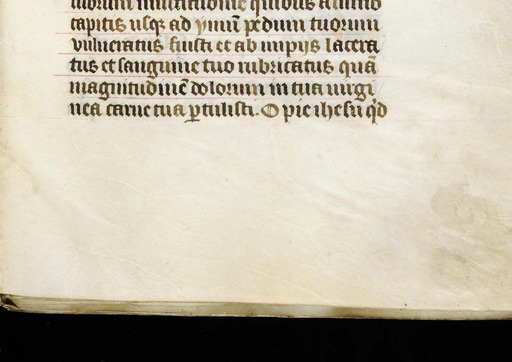 multitudine quibus a summo
capitis usq; ad ymũ pedum tuorum
vulneratus fuisti et ab impijs lacera
tus et sanguine tuo rubricatus quã
magnitudinẽ dolorum in tua uirgi
nea carne tua ptulisti. O pie ihesu qd